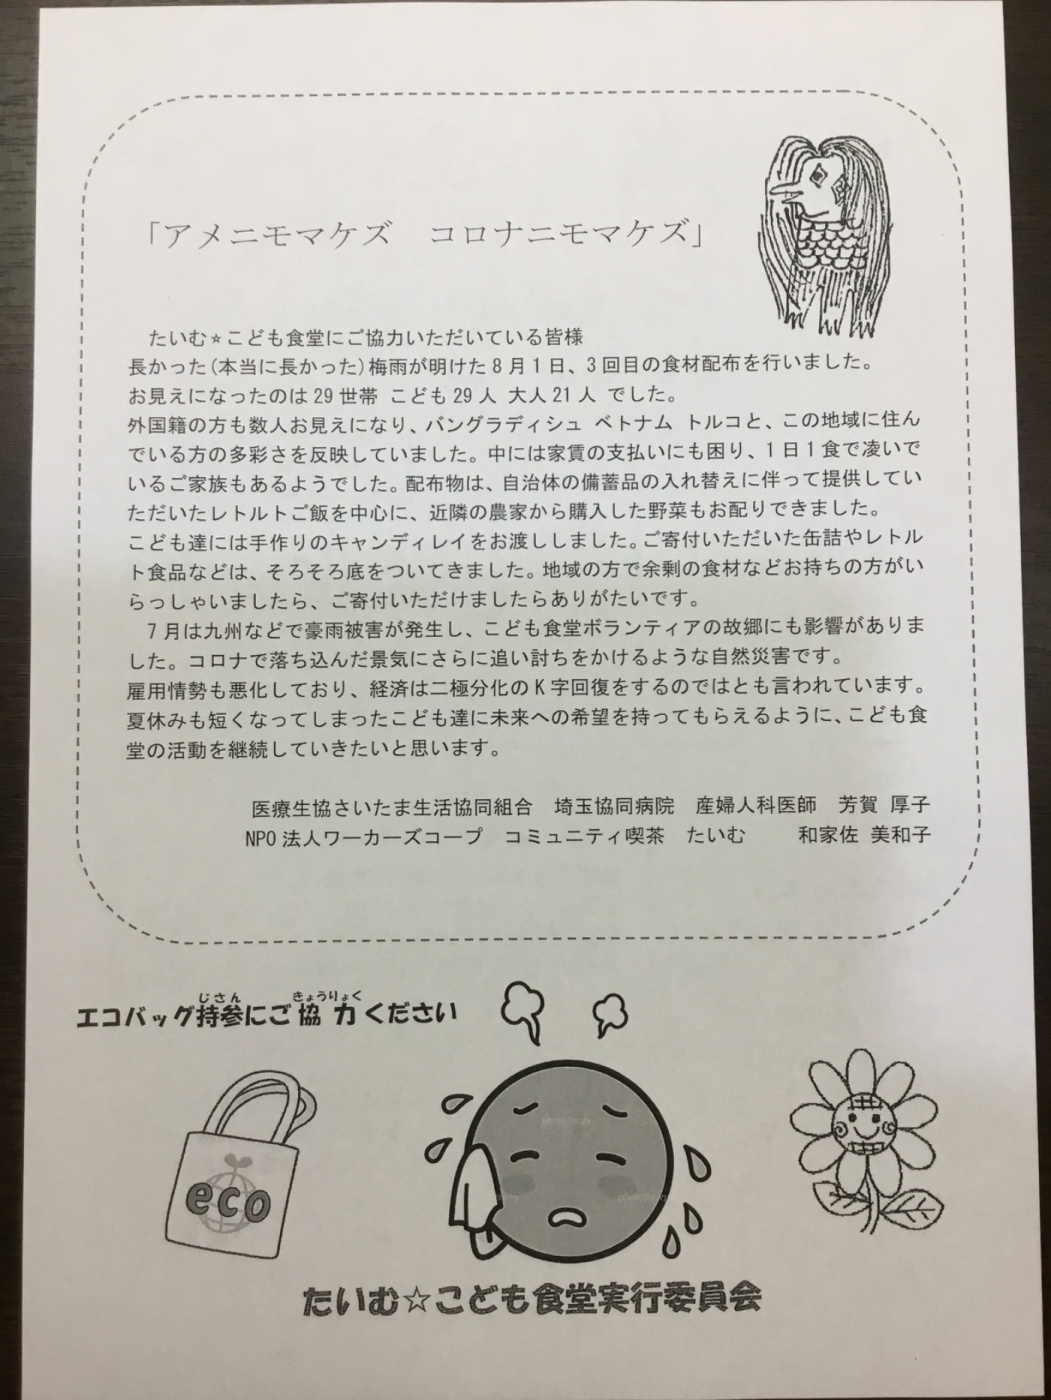 「アメニモマケズ　コロナニモマケズ」
たいむ☆こども食堂にご協力いただいている皆様
長かった(本当に長かった)梅雨が明けた8月1日、3回目の食材配布を行いました。
お見えになったのは29世帯 こども29人 大人21人 でした。
外国籍の方も数人お見えになり、バングラディシュ ベトナム トルコと、この地域に住ん
でいる方の多彩さを反映していました。中には家賃の支払いにも困り、1日1食で凌いで
いるご家族もあるようでした。配布物は、自治体の備蓄品の入れ替えに伴って提供してい
ただいたレトルトご飯を中心に、近隣の農家から購入した野菜もお配りできました。
こども達には手作りのキャンディレイをお渡ししました。ご寄付いただいた缶詰やレトル
ト食品などは、そろそろ底をついてきました。地域の方で余剰の食材などお持ちの方がい
らっしゃいましたら、ご寄付いただけましたらありがたいです。
7月は九州などで豪雨被害が発生し、こども食堂ボランティアの故郷にも影響がありま
した。コロナで落ち込んだ景気にさらに追い討ちをかけるような自然災害です。
雇用情勢も悪化しており、経済は二極分化のK字回復をするのではとも言われています。
夏休みも短くなってしまったこども達に未来への希望を持ってもらえるように、こども食
堂の活動を継続していきたいと思います。
医療生協さいたま生活協同組合　埼玉協同病院　産婦人科医師　芳賀 厚子
NPO法人ワーカーズコープ　コミュニティ喫茶　たいむ　　和家佐 美和子
じさん　きょうりょく
エコバッグ持参にご協力ください
eco
たいむ☆こども食堂実行委員会